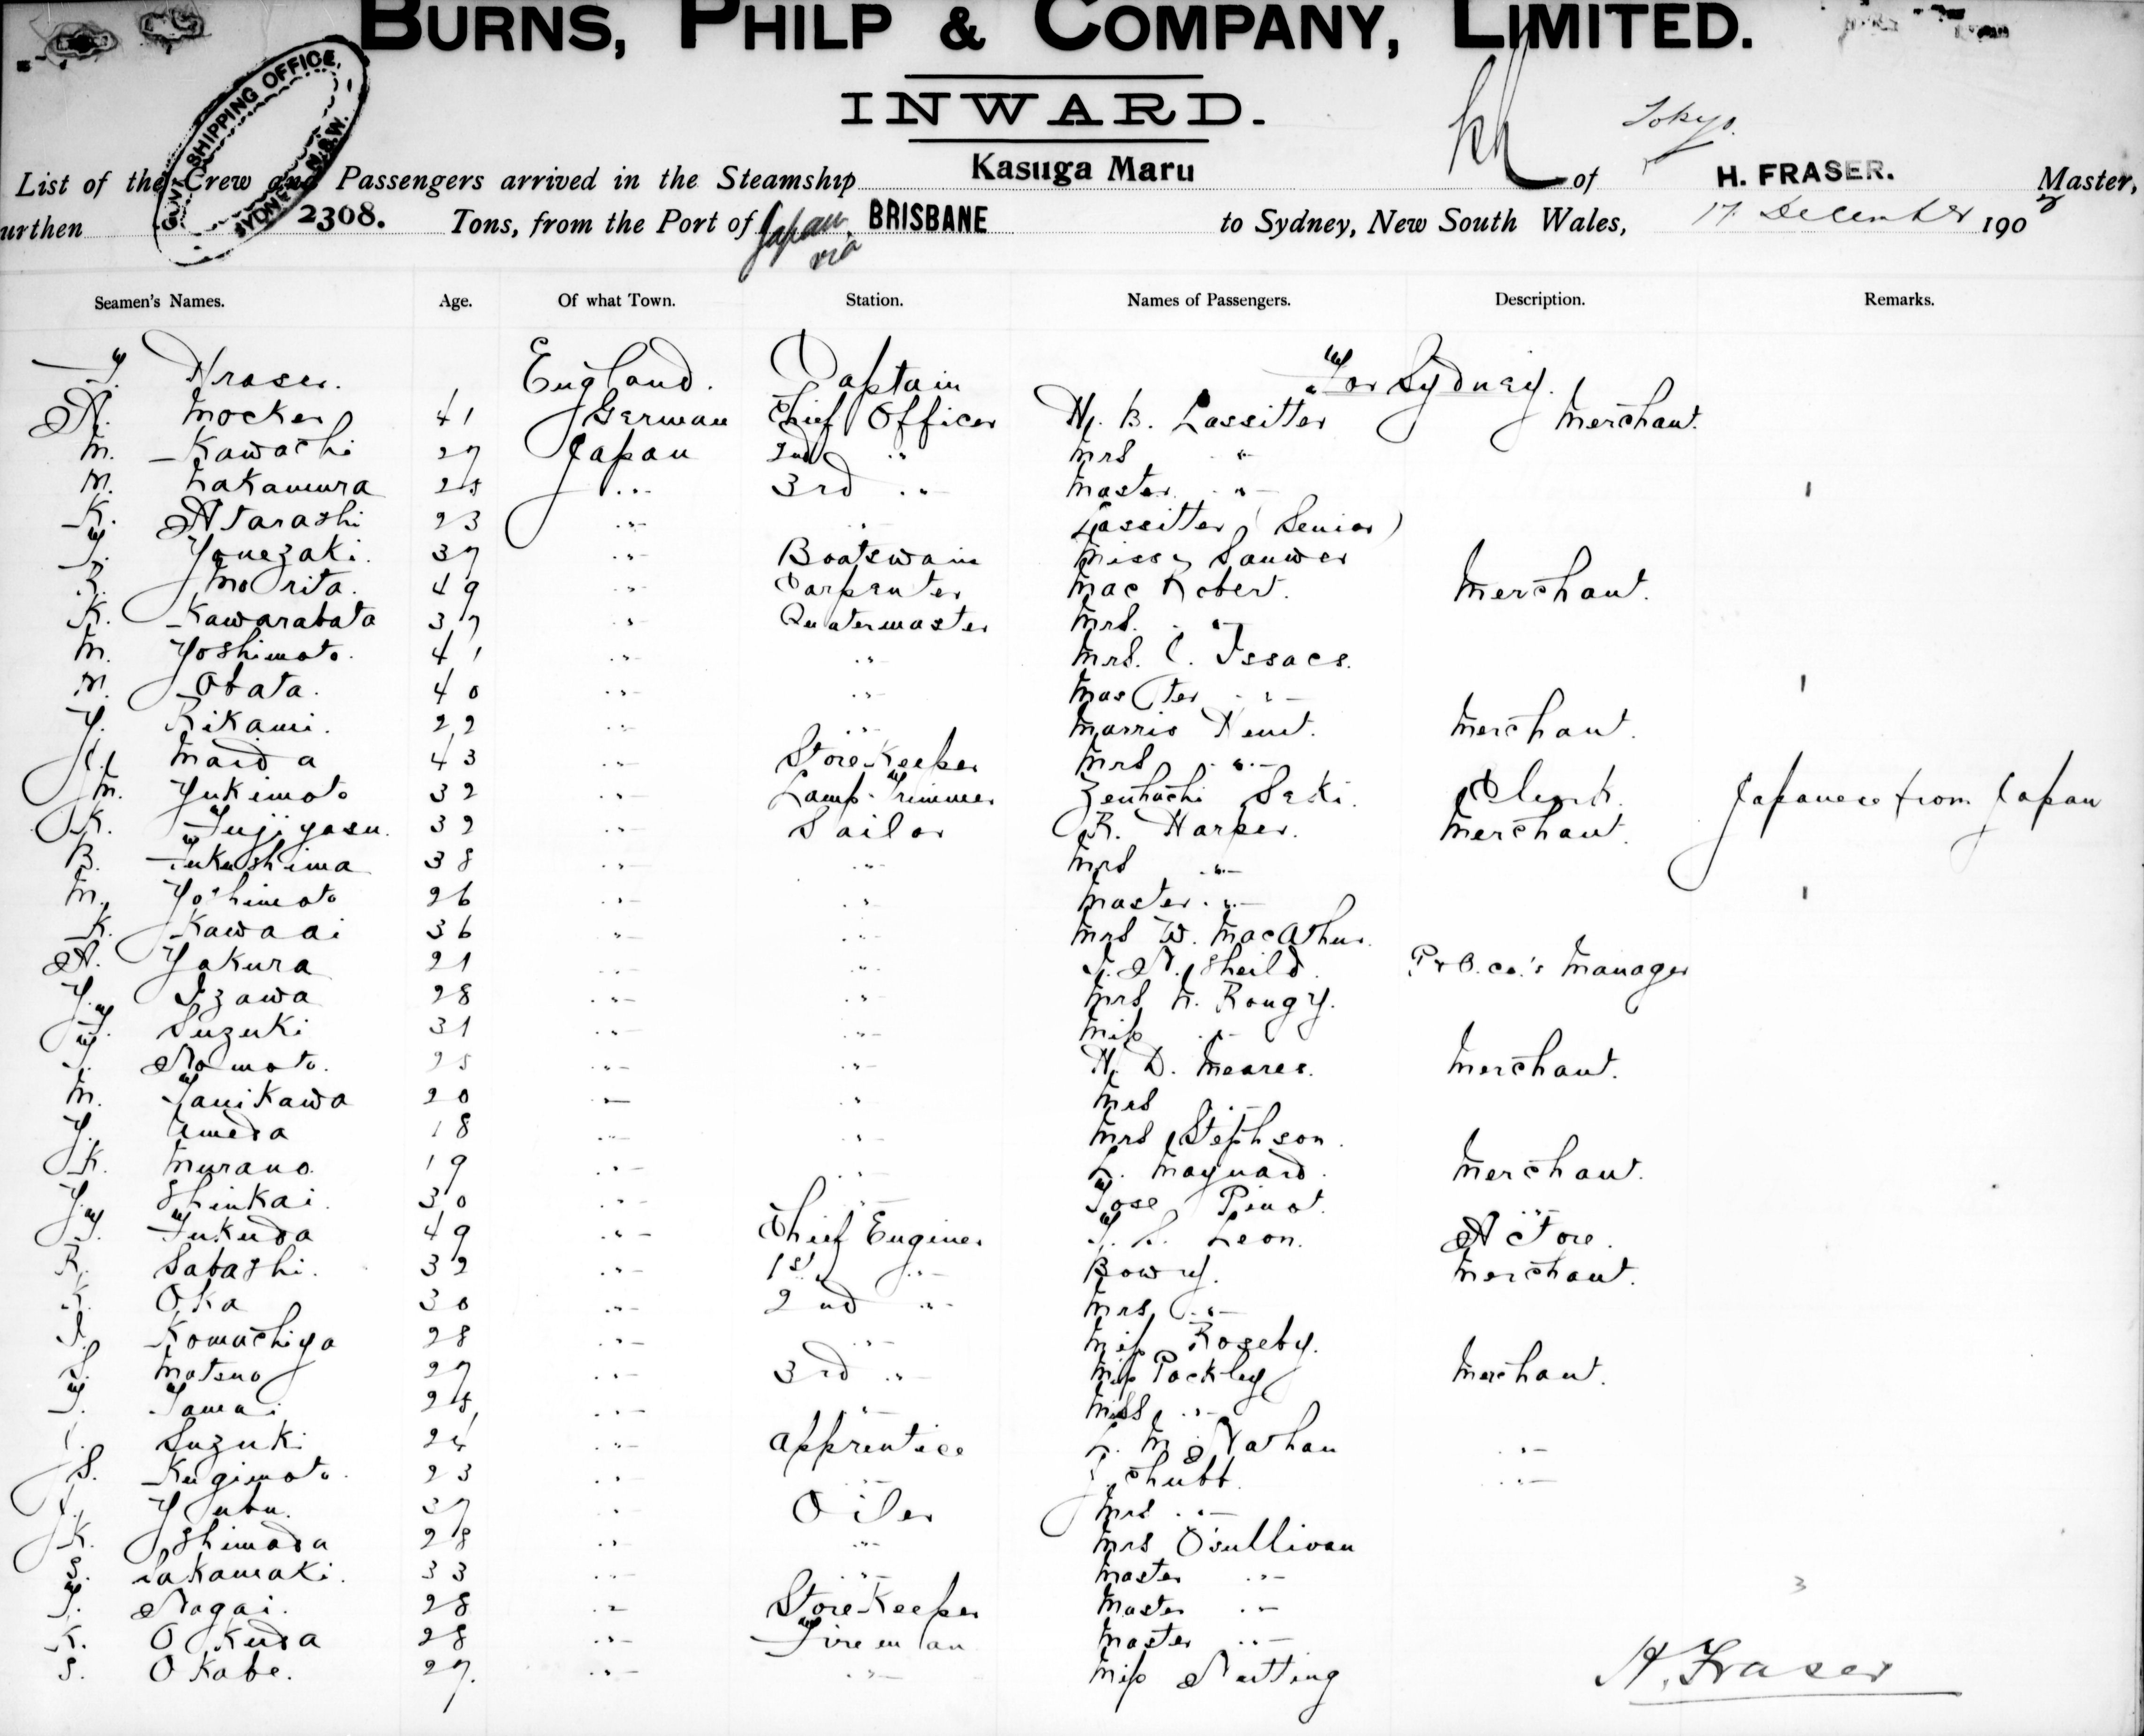 BURNS, PHILP & COMPANY, LIMITED.
INWARD.
GOVT SHIPPING OFFICE, SYDNEY N.S.W.
Tokyo.
List of the Crew and Passengers arrived in the Steamship Kasuga Maru of H. FRASER. Master,
urthen 2308. Tons, from the Port of Japan via BRISBANE to Sydney, New South Wales, 17 December 190
Seamen's Names. Age. Of what Town. Station. Names of Passengers. Description. Remarks.
Fraser. England. Captain For Sydney.
A. Mocker 41 German Chief Officer H. B. Lassitter Merchant.
M. Kawachi 27 Japan 2nd " Mrs "
M. Nakamura 25 " 3rd " Master "
K. Atarashi 23 " " Lassitter (Senior)
T. Yonezaki. 37 " Boatswain Miss Sauwer
Morita. 49 " Carpenter Mac Robert. Merchant.
K. Kawarabata 37 " Quatermaster Mrs. "
M. Yoshimoto. 41 " " Mrs. C. Issacs.
M. Obata. 40 " " Master "
Y. Rikami. 22 " " Morris Hunt. Merchant.
Maida 43 " Storekeeper Mrs "
M. Yukimoto 32 " Lamp-Trimmer Zenhachi Seki. Clerk. Japanese from Japan
K. Fujiyasu. 32 " Sailor R. Harper. Merchant.
B. Fukushima 38 " " Mrs "
M. Yoshimoto 26 " " Master "
K. Kawaai 36 " " Mrs W. MacArthur.
A. Yakura 21 " " Sheild. P & O. co.'s Manager
Y. Izawa 28 " " Mrs Rougy.
T. Suzuki 31 " " Miss "
T. Nomoto. 25 " " H. D. Meares. Merchant.
M. Tanikawa 20 " " Mrs "
Y. Umeda 18 " " Mrs Stephson.
K. Murano. 19 " " L. Maynard. Merchant.
Y. Shinkai. 30 " " Jose Pinot. "
T. Fukuda 49 " Chief Enginer Leon. Actore.
R. Sabashi. 32 " 1st " Bowry. Merchant.
K. Oka 30 " 2nd " Mrs "
Komachiya 28 " " Miss Roseby.
S. Matsuo 27 " 3rd " Miss Pockley Merchant.
T. Tamai 25 " " Miss "
Suzuki 24 " Apprentice L. M. Nathan "
S. Kugimoto. 23 " " Chubb. "
Yubu. 37 " Oiler Mrs "
K. Shimada 28 " " Mrs O'sullivan
S. Sakamaki. 33 " " Master "
T. Nagai. 28 " Storekeeper Master " 3
K. Okuda 28 " Fireman Master "
S. Okabe. 27. " " Miss Nutting
H. Fraser